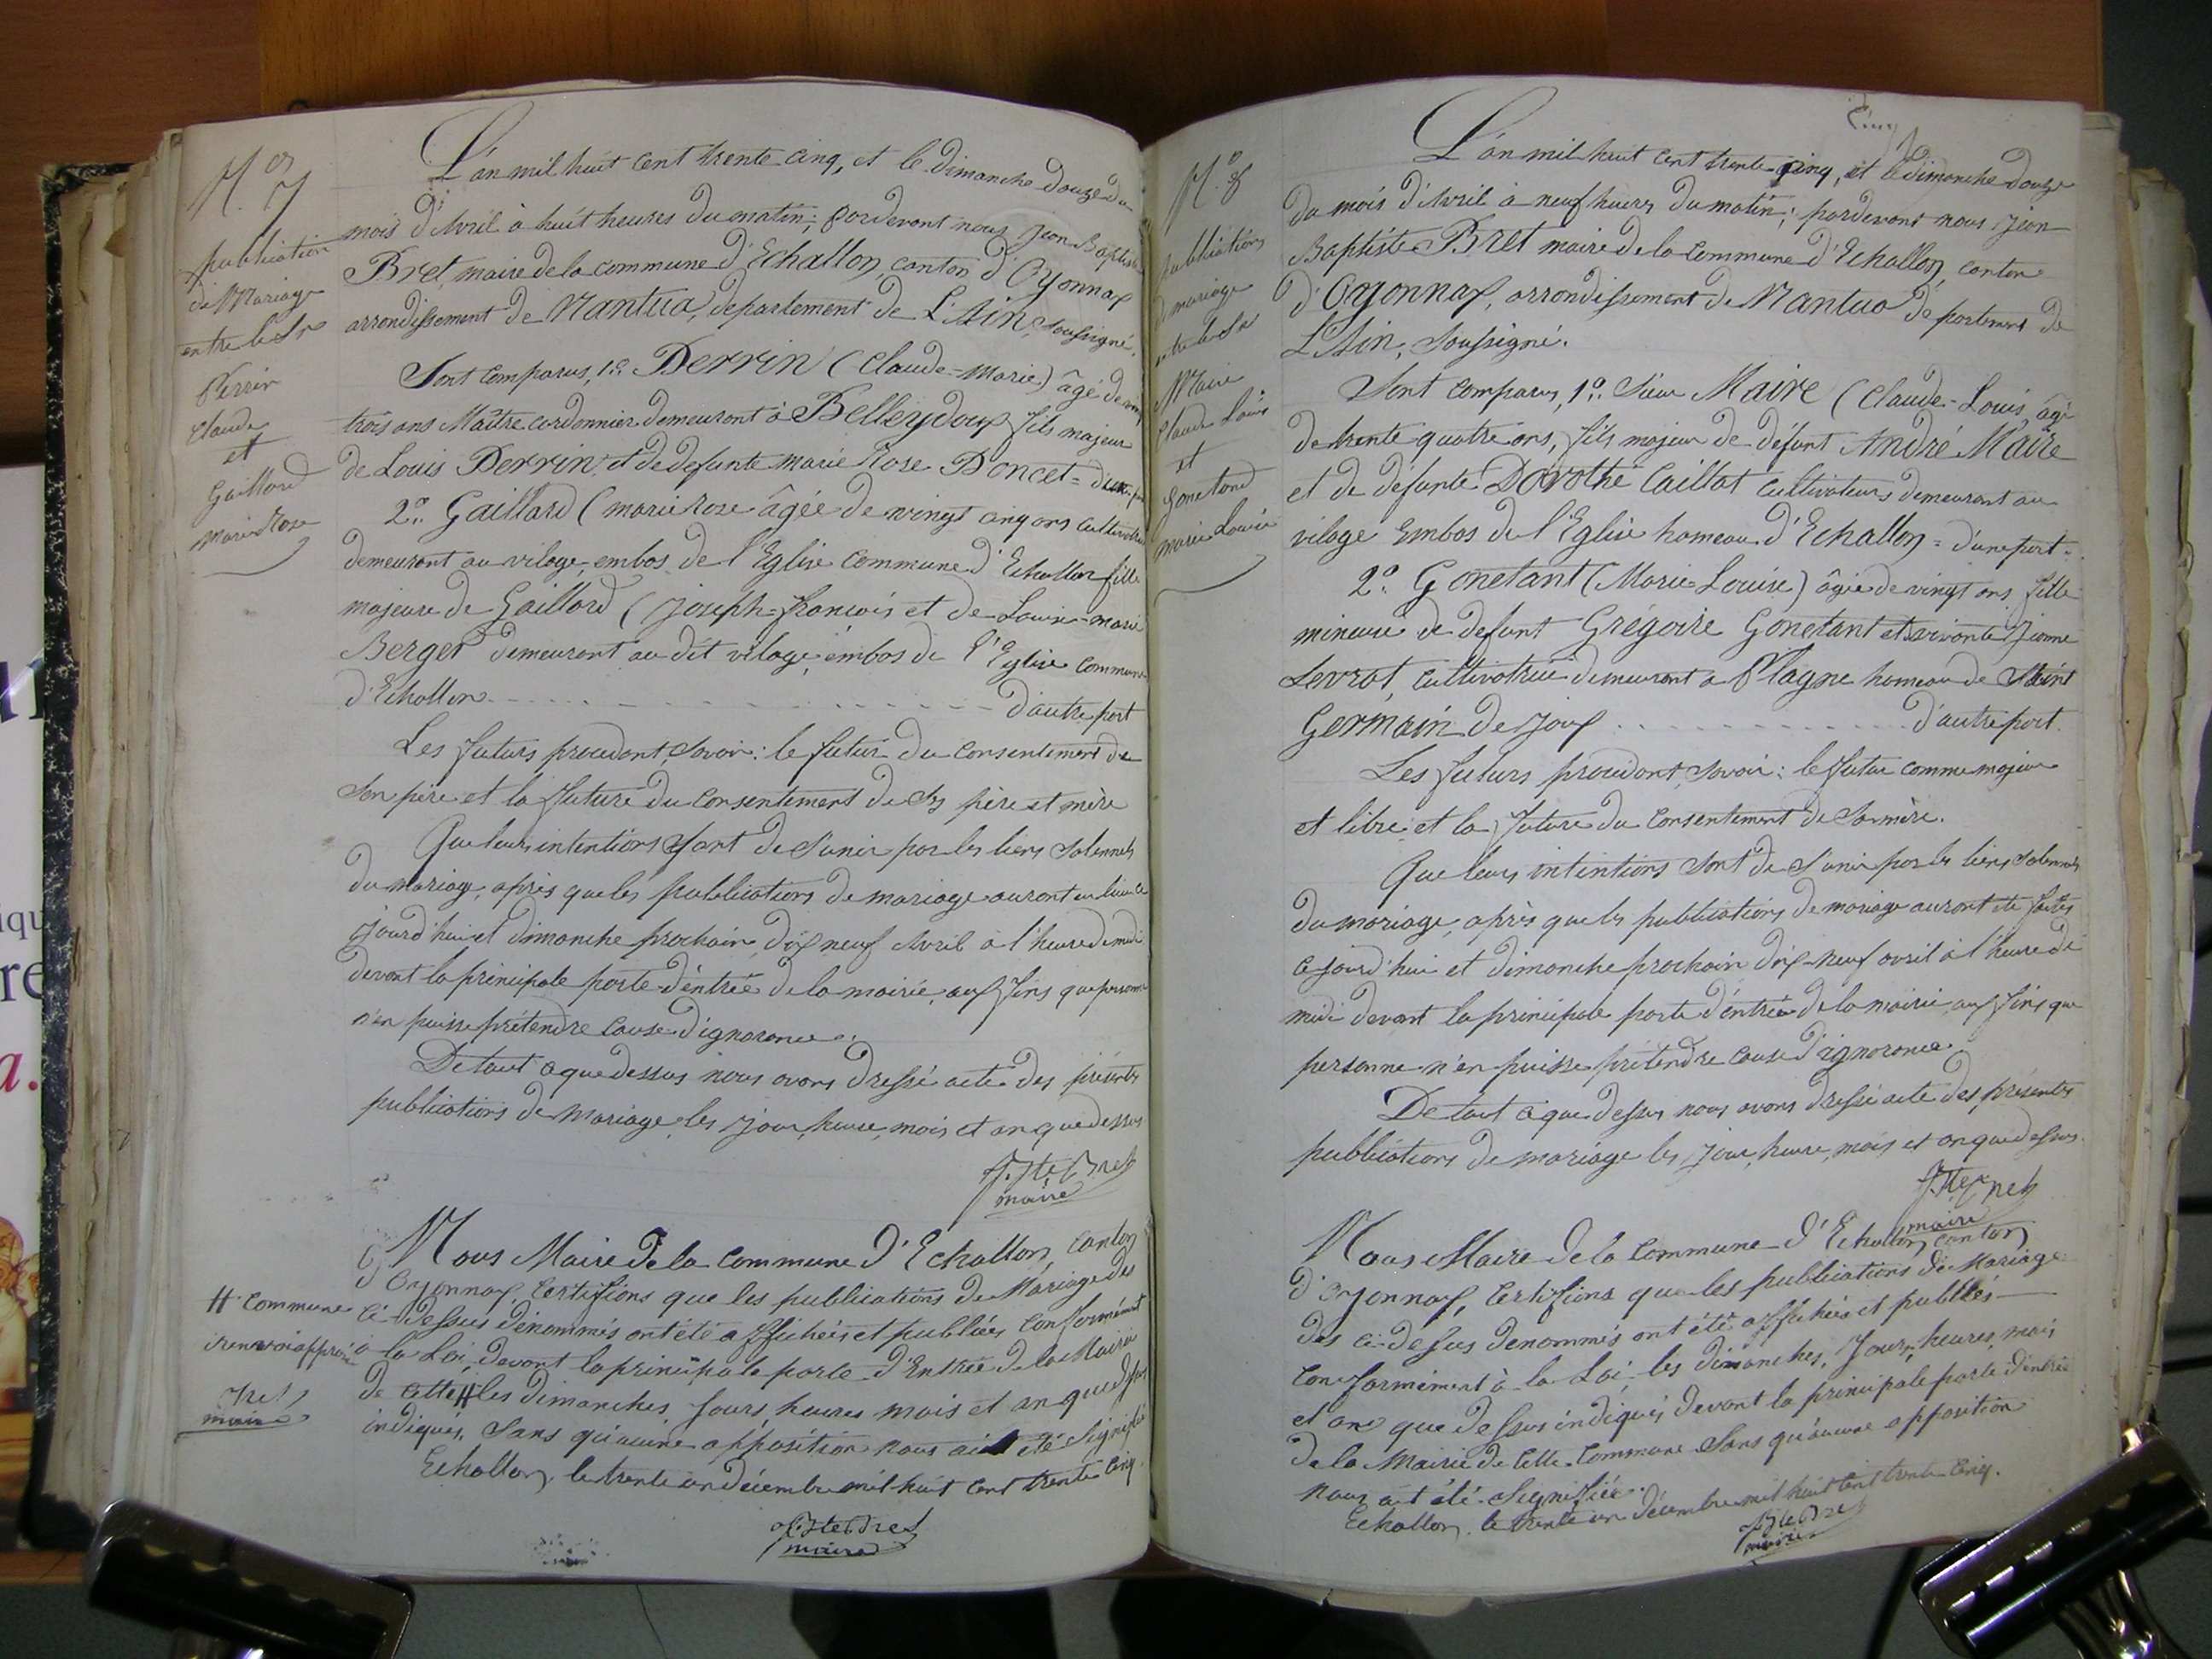 N.º 7
publication
de Mariage
entre le Sr
Perrin
Claude
et
Gaillard
Marie Rose
L'an mil huit cent trente cinq, et le dimanche douze du
mois d'Avril à huit heures du matin; pardevant nous Jean Baptiste
Bret, maire de la commune d'Echallon, canton d'Oyonnax
arrondissement de Nantua, departement de L'Ain, soussigné.
Sont comparus, 1.º Perrin (Claude-Marie) âgé de vingt
trois ans Maître cordonnier demeurant à Belleydoux fils majeur
de Louis Perrin et de defunte marie Rose Poncet = d'une part
2.º Gaillard (marie Rose âgée de vingt cinq ans cultivatrice
demeurant au vilage embas de l'Eglise commune d'Echallon fille
majeure de Gaillard (Joseph-francois et de Louise-marie
Berger demeurant au dit vilage embas de l'Eglise commune
d'Echallon d'autre part
Les futurs procedant, savoir: le futur du consentement de
son père et la future du consentement de ses père et mère
Que leurs intentions sont de s'unir par les liens solennels
du mariage, après que les publications de mariage auront eu lieu ce
jourd'hui et dimanche prochain dix neuf Avril à l'heure de midi
devant la principale porte d'entrée de la mairie, aux fins que personne
n'en puisse prétendre cause d'ignorance.
De tout ce que dessus nous avons dressé acte des présentes
publications de mariage, les jour, heure, mois et an que dessus
J. Bte Bret
maire
Nous Maire de la commune d'Echallon, canton
d'Oyonnax, certifions que les publications de Mariage des
ci-dessus dénommés ont été affichées et publiées conformément
à la Loi, devant la principale porte d'Entrée de la Mairie
de cette # les dimanches, Jours, heures mois et an que dessus
indiqués, sans qu'aucune opposition nous ait été signifiée
Echallon, le trente un décembre mil huit cent trente cinq
J. Bte Bret
maire
# commune
renvoi approuvé
Bret
maire
N.º 8
publications
de mariage
entre le Sr
Maire
Claude Louis
et
Gonetand
marie Louise
Cinq
L'an mil huit cent trente-cinq, et le dimanche douze
du mois d'Avril à neuf heures du matin; pardevant nous Jean
Baptiste Bret maire de la commune d'Echallon, canton
d'Oyonnax, arrondissement de Nantua departement de
L'Ain, soussigné.
Sont comparus, 1.º Sieur Maire (Claude-Louis, âgé
de trente quatre ans, fils majeur de défunt André Maire
et de défunte Dorothé Caillat cultivateurs demeurant au
vilage Embas de l'Eglise hameau d'Echallon = d'une part =
2.º Gonetant (Marie Louise) âgée de vingt ans fille
mineure de defunt Grégoire Gonetant et vivante Jeanne
Levrat, cultivatrice demeurant a Plagne hameau de Saint
Germain de Joux d'autre part.
Les futurs procédant, savoir: le futur comme majeur
et libre et la future du consentement de sa mère.
Que leurs intentions sont de s'unir par les liens solennels
du mariage, après que les publications de mariage auront été faites
ce jourd'hui et dimanche prochain dix-neuf avril à l'heure de
midi devant la principale porte d'entrée de la mairie, aux fins que
personne n'en puisse prétendre cause d'ignorance.
De tout ce que dessus nous avons dressé acte des présentes
publications de mariage les jour, heure, mois et an que dessus.
J. Bte Bret
maire
Nous Maire de la commune d'Echallon, canton
d'Oyonnax, Certifions que les publications de Mariage
des ci-dessus denommés ont été affichées et publiés
conformément à la Loi, les dimanches, Jours, heures, mois
et ans que dessus indiqués, devant la principale porte d'entrée
de la Mairie de Cette Commune sans qu'aucune opposition
nous ait été signifiée.
Echallon, le trente un décembre mil huit cent trente cinq.
J. Bte Bret
maire